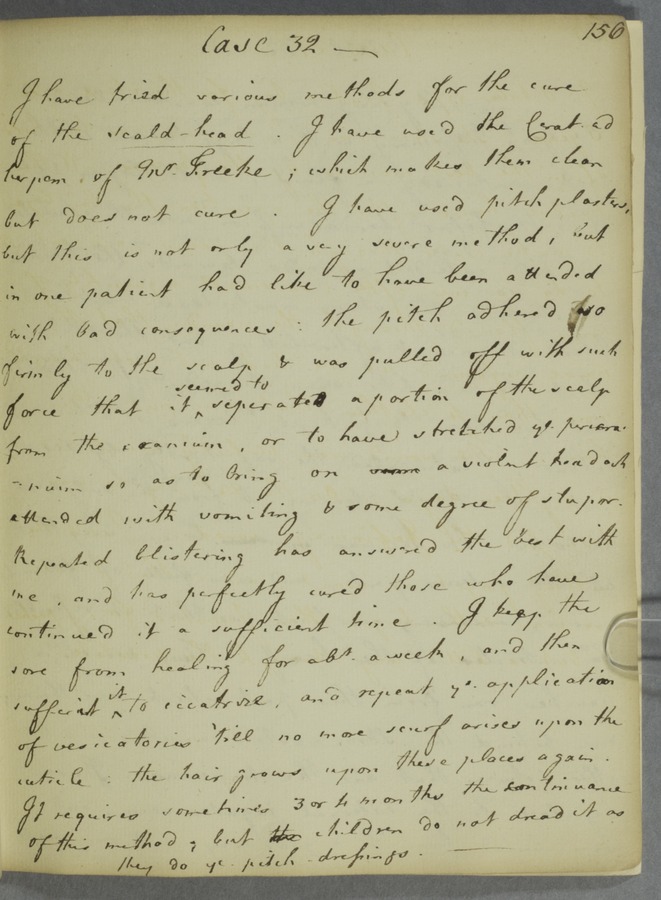 156
Case 32 —
I have tried various methods for the cure
of the scald-head. I have used the Cerat. ad
herpem. of Mr. Freeke; which makes them clean
but does not cure. I have used pitch plasters,
but this is not only a very severe method, but
in one patient had like to have been attended
with bad consequences: the pitch adhered so
firmly to the scalp & was pulled off with such
force that it seemed to seperate a portion of the scalp
from the cranium, or to have stretched ye. pericra-
-nium so as to bring on a violent headach
attended with vomiting & some degree of stupor.
Repeated blistering has answered the best with
me, and has perfectly cured those who have
continued it a sufficient time. I keep the
sore from healing for abt. a week, and then
suffer it to cicatrize, and repeat ye. application
of vesicatories 'till no more scurf arises upon the
cuticle: the hair grows upon these places again.
It requires sometimes 3 or 4 months the continuance
of this method; but children do not dread it as
they do ye. pitch-dressings. —